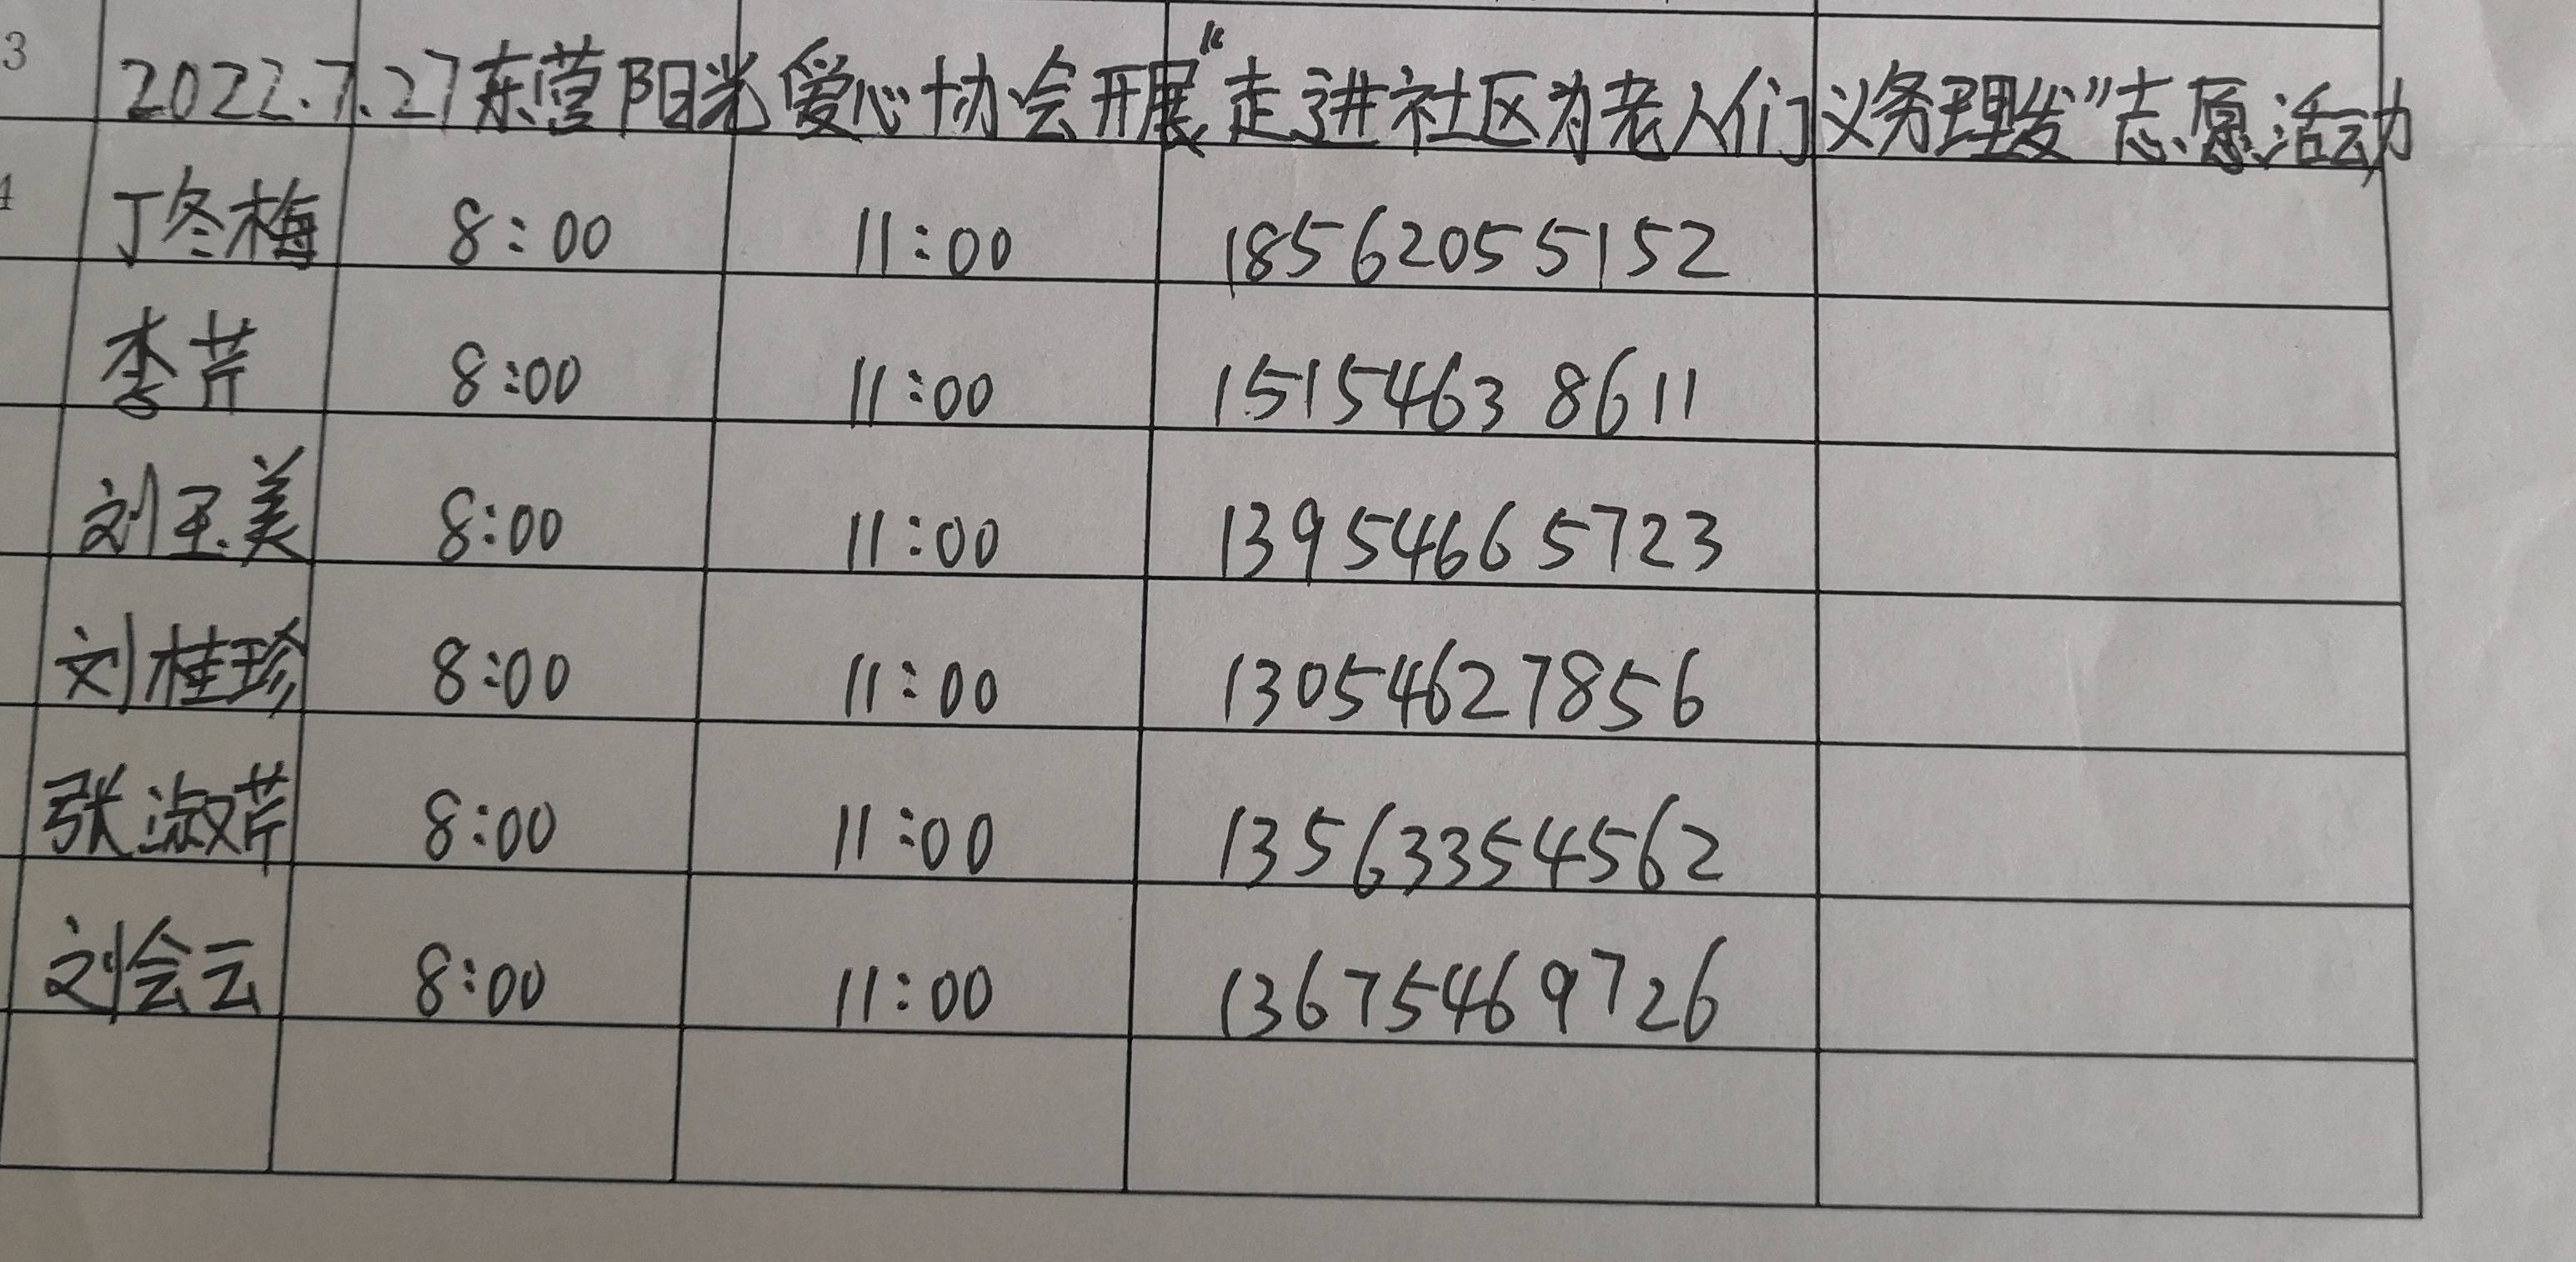 3 2022.7.27东营阳光爱心协会开展“走进社区为老人们义务理发”志愿活动
4 丁冬梅 8:00 11:00 18562055152
李芹 8:00 11:00 15154638611
刘玉美 8:00 11:00 13954665723
刘桂珍 8:00 11:00 13054627856
张淑芹 8:00 11:00 13563354562
刘会云 8:00 11:00 13675469726